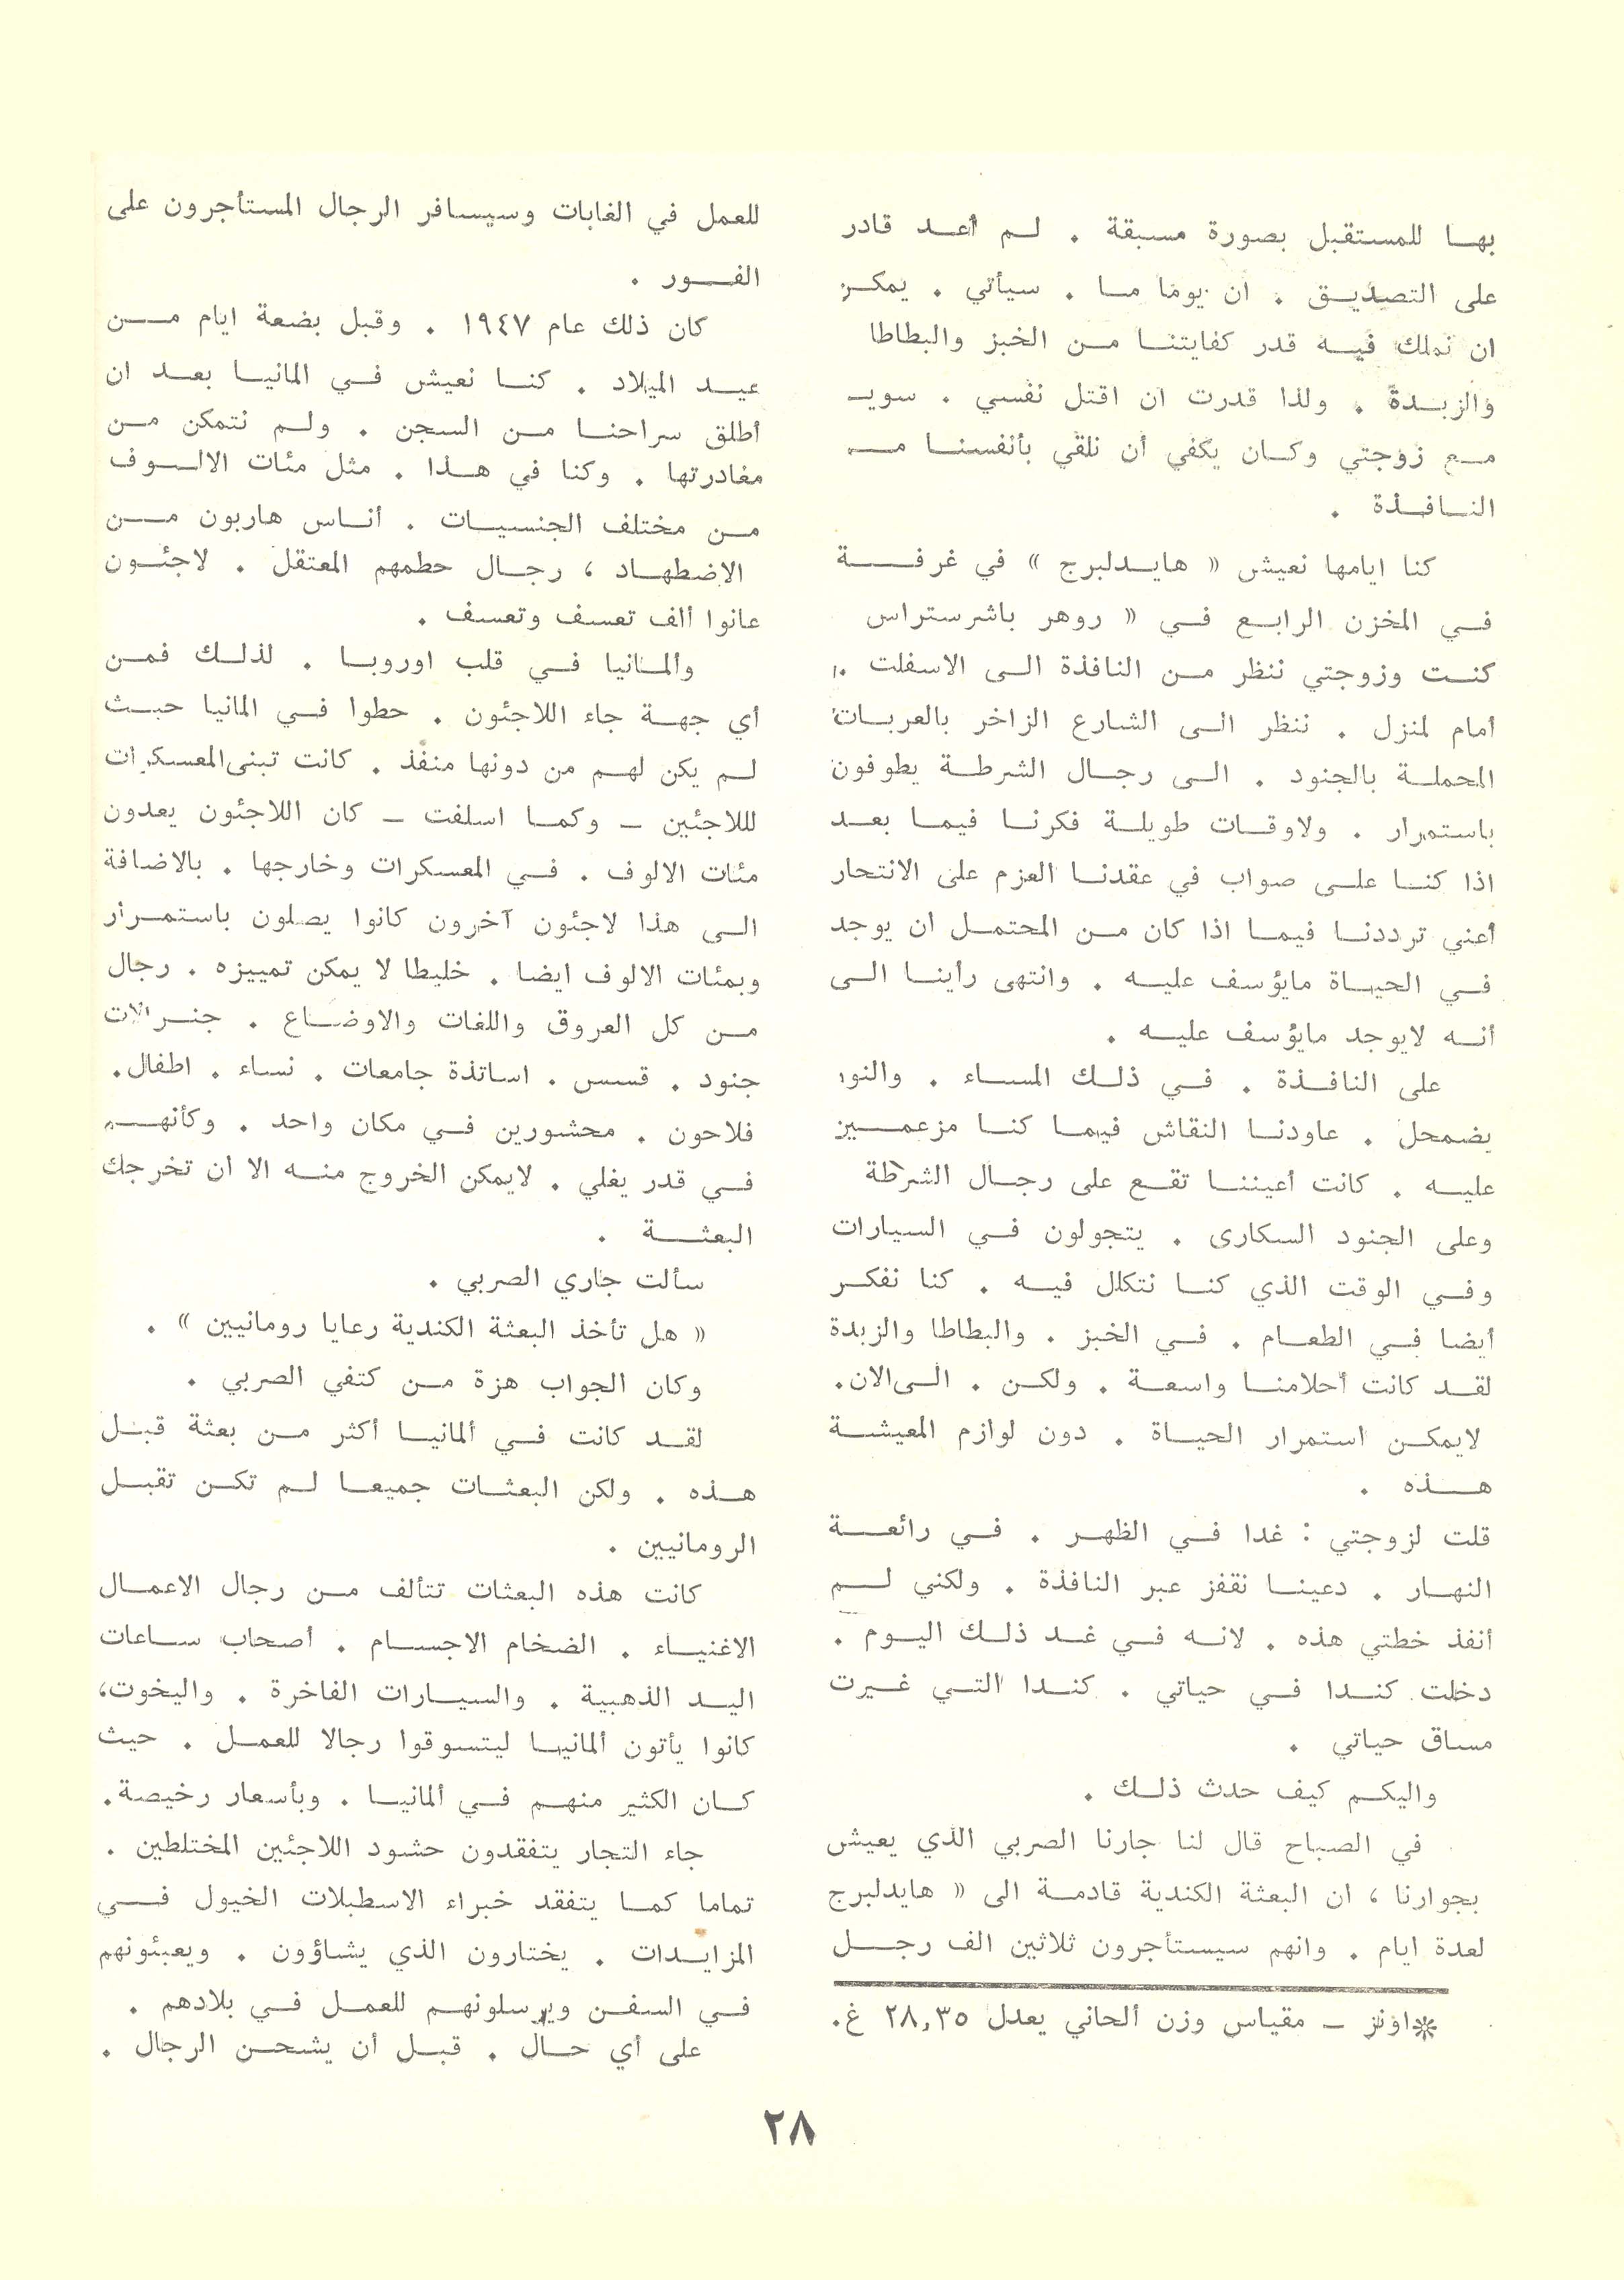 بها للمستقبل بصورة مسبقة . لم أعد قادر
على التصديق . ان يوما ما . سيأتي . يمكن
ان نملك فيه قدر كفايتنا من الخبز والبطاطا
والزبدة . ولذا قدرت ان اقتل نفسي . سويـ
مع زوجتي وكان يكفي أن نلقي بأنفسنا مـ
النافذة .
كنا ايامها نعيش « هايدلبرج » في غرفة
في المخزن الرابع في « روهر باشرستراس
كنت وزوجتي ننظر من النافذة الى الاسفلت .
أمام لمنزل . ننظر الى الشارع الزاخر بالعربات
المحملة بالجنود . الى رجال الشرطة يطوفون
باستمرار . ولاوقات طويلة فكرنا فيما بعد
اذا كنا على صواب في عقدنا العزم على الانتحار
أعني ترددنا فيما اذا كان من المحتمل ان يوجد
في الحياة مايؤسف عليه . وانتهى رأينا الى
أنه لايوجد مايؤسف عليه .
على النافذة . في ذلك المساء . والنور
يضمحل . عاودنا النقاش فيما كنا مزعمين
عليه . كانت أعيننا تقع على رجال الشرطة
وعلى الجنود السكارى . يتجولون في السيارات
وفي الوقت الذي كنا نتكلل فيه . كنا نفكر
أيضا في الطعام . في الخبز . والبطاطا والزبدة
لقد كانت أحلامنا واسعة . ولكن . الى الان .
لايمكن استمرار الحياة . دون لوازم المعيشة
هذه .
قلت لزوجتي : غدا في الظهر . في رائعة
النهار . دعينا نقفز عبر النافذة . ولكني لم
أنفذ خطتي هذه . لانه في غد ذلك اليوم .
دخلت كندا في حياتي . كندا التي غيرت
مساق حياتي .
واليكم كيف حدث ذلك .
في الصباح قال لنا جارنا الصربي الذي يعيش
بجوارنا ، ان البعثة الكندية قادمة الى « هايدلبرج
لعدة ايام . وانهم سيستأجرون ثلاثين الف رجل
*اونز – مقياس وزن ألحاني يعدل ٢٨,٣٥ غ.
للعمل في الغابات وسيسافر الرجال المستأجرون على
الفور .
كان ذلك عام ١٩٤٧ . وقبل بضعة ايام من
عيد الميلاد . كنا نعيش في المانيا بعد ان
أطلق سراحنا من السجن . ولم نتمكن من
مغادرتها . وكنا في هذا . مثل مئات الالوف
من مختلف الجنسيات . أناس هاربون من
الاضطهاد ، رجال حطمهم المعتقل . لاجئون
عانوا ألف تعسف وتعسف .
وألمانيا في قلب اوروبا . لذلك فمن
أي جهة جاء اللاجئون . حطوا في المانيا حيث
لم يكن لهم من دونها منفذ . كانت تبنى المعسكرات
لللاجئين – وكما اسلفت – كان اللاجئون يعدون
مئات الالوف . في المعسكرات وخارجها . بالاضافة
الى هذا لاجئون آخرون كانوا يصلون باستمرار
وبمئات الالوف ايضا . خليطا لا يمكن تمييزه . رجال
من كل العروق واللغات والاوضاع . جنرالات
جنود . قسس . اساتذة جامعات . نساء . اطفال.
فلاحون . محشورين في مكان واحد . وكأنهم
في قدر يغلي . لايمكن الخروج منه الا ان تخرجك
البعثة .
سألت جاري الصربي .
« هل تأخذ البعثة الكندية رعايا رومانيين » .
وكان الجواب هزة من كتفي الصربي .
لقد كانت في ألمانيا أكثر من بعثة قبل
هذه . ولكن البعثات جميعا لم تكن تقبل
الرومانيين .
كانت هذه البعثات تتألف من رجال الاعمال
الاغنياء . الضخام الاجسام . أصحاب ساعات
اليد الذهبية . والسيارات الفاخرة . واليخوت،
كانوا يأتون ألمانيا ليتسوقوا رجالا للعمل . حيث
كان الكثير منهم في ألمانيا . وبأسعار رخيصة.
جاء التجار يتفقدون حشود اللاجئين المختلطين .
تماما كما يتفقد خبراء الاسطبلات الخيول في
المزايدات . يختارون الذي يشاؤون . ويعبئونهم
في السفن ويرسلونهم للعمل في بلادهم .
على أي حال . قبل أن يشحن الرجال .
٢٨